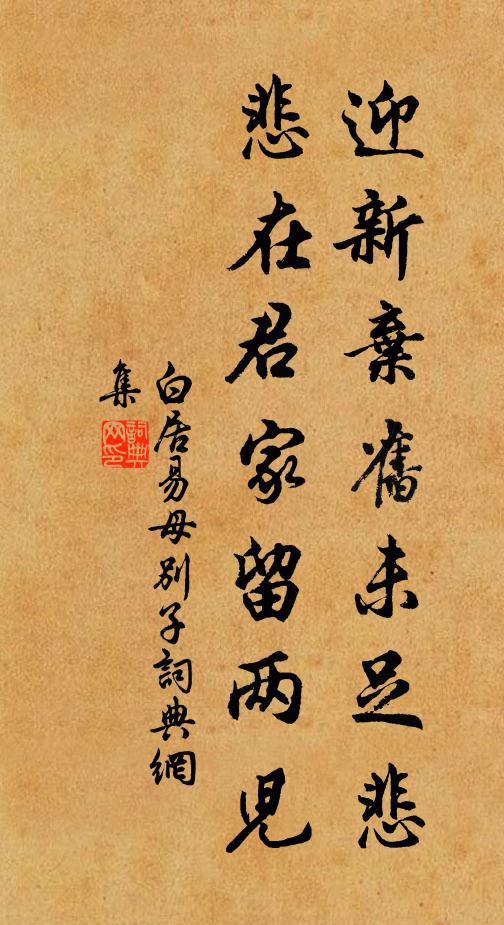 迎新棄舊未足悲
悲在君家留兩兒
白居易母別子詞典網
集
詞典
网印